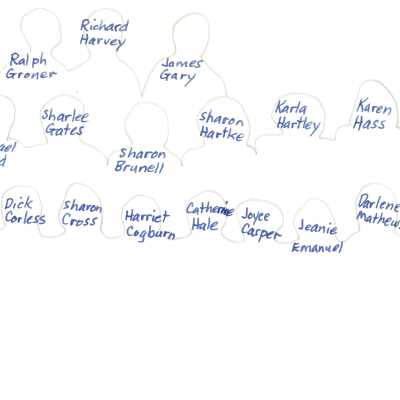 Ralph
Groner
Richard
Harvey
James
Gary
ael
d
Sharlee
Gates
Sharon
Brunell
Sharon
Hartke
Karla
Hartley
Karen
Hass
Dick
Corless
Sharon
Cross
Harriet
Cogburn
Catherine
Hale
Joyce
Casper
Jeanie
Emanuel
Darlene
Mathews